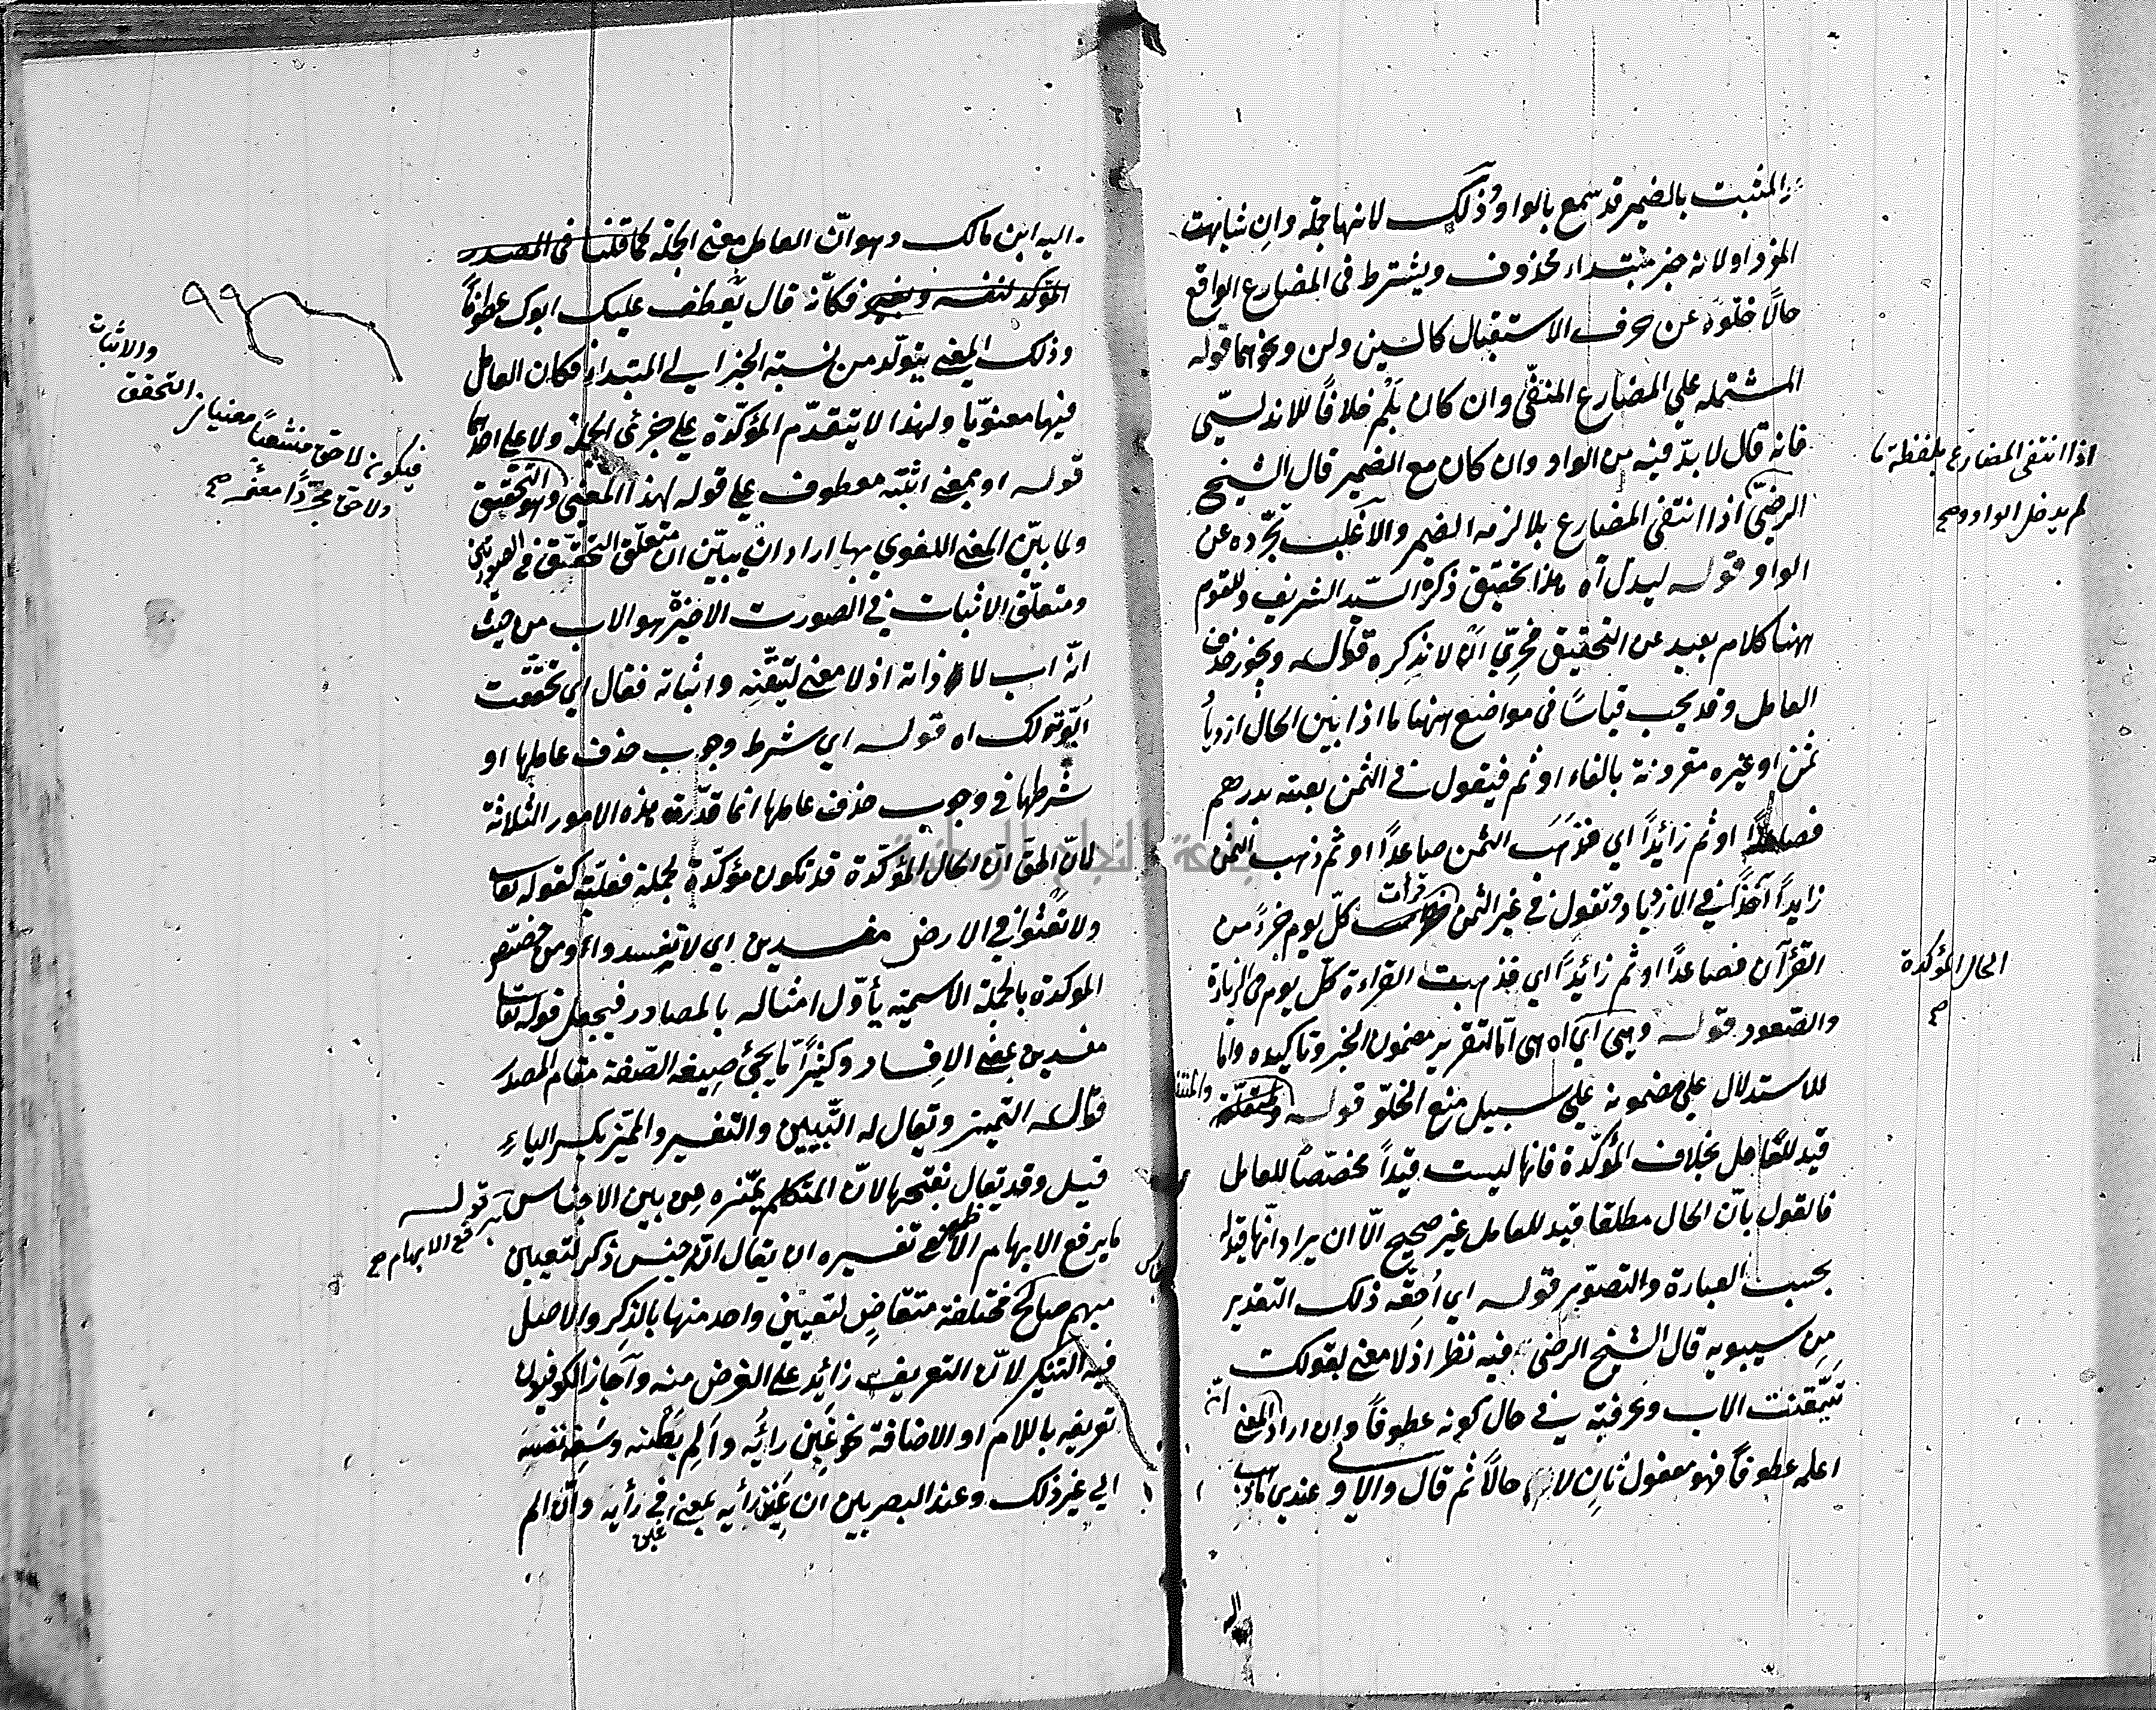 المثبت بالضمير قد سمع بالواو وذلك لانها جملة وان شابهت
المفرد او لانه خبر مبتداء محذوف ويشترط في المضارع الواقع
حالاً خلوّه عن حرف الاستقبال كالسين ولن ونحوهما قوله
المشتملة علي المضارع المنفّي وان كان بلم خلافاً للاندلسي
فانه قال لا بدّ فيه من الواو وان كان مع الضمير قال الشيخ
الرضيّ اذا انتفى المضارع بلا لزمه الضمير والاغلب تجرّده عن
الواو قوله ليدل آه هذا تحقيق ذكره السيّد الشريف وللقوم
ههنا كلام بعيد عن التحقيق فحرّي ان لا نذكره قوله ويجوز حذف
العامل وقد يجب قياسًا في مواضع منها ما اذا بين الحال ازدياد
ثمن او غيره مقرونة بالفاء او ثم فيقول في الثمن بعته بدرهم
فصاعداً او ثم زائداً اي فذهب الثمن صاعداً او ثم ذهب الثمن
زايداً آخذاً في الازدياد وتقول في غير الثمن قرأت كلّ يوم جزءً من
القرآن فصاعداً او ثم زائداً اي فذهبت القراءة كلّ يوم في الزيادة
والصّعود قوله وهي اي آه هي امّا لتقرير مضمون الخبر وتاكيده وامّا
للاستدلال علي مضمونه علي سبيل منع الخلوّ قوله والمنتقلة
قيد للعامل بخلاف المؤكّدة فانها ليست قيداً مخصّصاً للعامل
فالقول بانّ الحال مطلقا قيد للعامل غير صحيح الّا ان يراد انّها قيد له
بحسب العبارة والتصوّير قوله اي اُحِقّه ذلك التقدير
من سيبويه قال الشيخ الرضي فيه نظر اذ لا معني لقولك
تيقّنت الاب وعرفته في حال كونه عطوفاً وان اراد المعني انّه
اعلمه عطوفاً فهو مفعول ثانٍ لا حالاً ثم قال والاولي عندي ما ذهب
اذا انتفى المضارع بلفظة ما
لم يدخل الواو صح
الحال المؤكدة
صح
اليه ابن مالك وهو انّ العامل معني الجملة كما قلنا في المصدر
المؤكد لنفسه وغيره فكانّه قال يعطف عليك ابوك عطوفاً
وذلك المعني يتولّد من نسبة الخبر الي المبتداء فكان العامل
فيها معنويّا ولهذا لا يتقدّم المؤكّدة علي جزئي الجملة ولا علي احدهما
قوله او بمعني اثبته معطوف علي قوله لهذا المعني وهو التحقيق
ولما بيّن المعني اللغوي بها اراد ان يبيّن ان متعلّق التحقيق في الصورتين
ومتعلّق الاثبات في الصورت الاخيرة هو الاب من حيث
انّه اب لا ذاته اذ لا معني لتيقّنه واثباته فقال اي تحقّقت
اُبُوّته لك اه قوله اي شرط وجوب حذف عاملها او
شرطها في وجوب حذف عاملها انما قدّر هذه الامور الثلاثة
لانّ الحق انّ الحال المؤكّدة قد تكون مؤكّدة لجملة فعليّة كقوله تعا
ولا تعثوا في الارض مفسدين اي لا تفسدوا ومن خصّص
الموكدة بالجملة الاسمية يأوّل امثاله بالمصادر فيجعل قوله تعا
مفسدين بمعني الافساد وكثيراً ما يجئ صيغة الصّفة مقام المصدر
قوله التميز ويقال له التّبيين والتفسير والمميّز بكسر الياء
قيل وقد يقال بفتحها لانّ المتكلم يميّزه من بين الاجناس قوله
ما يرفع الابهام الاظهر في تفسيره ان يقال انّه جنس ذكر لتعيين
مبهم صالح مختلفة متقاضٍ لتعيين واحد منها بالذكر والاصل
فيه التنكير لانّ التعريف زائد علي الغرض منه واجاز الكوفيون
تعريفه باللام او الاضافة نحو غبن رائه والم بطنه وسفه نفسه
الي غير ذلك وعند البصريين ان غبن رأيه بمعني في رأيه وان الم
غبن
والاثبات
فيكون لاحق معنيان التحقق
ولاحق مجرّداً صح
يرفع الابهام صح
٩٩